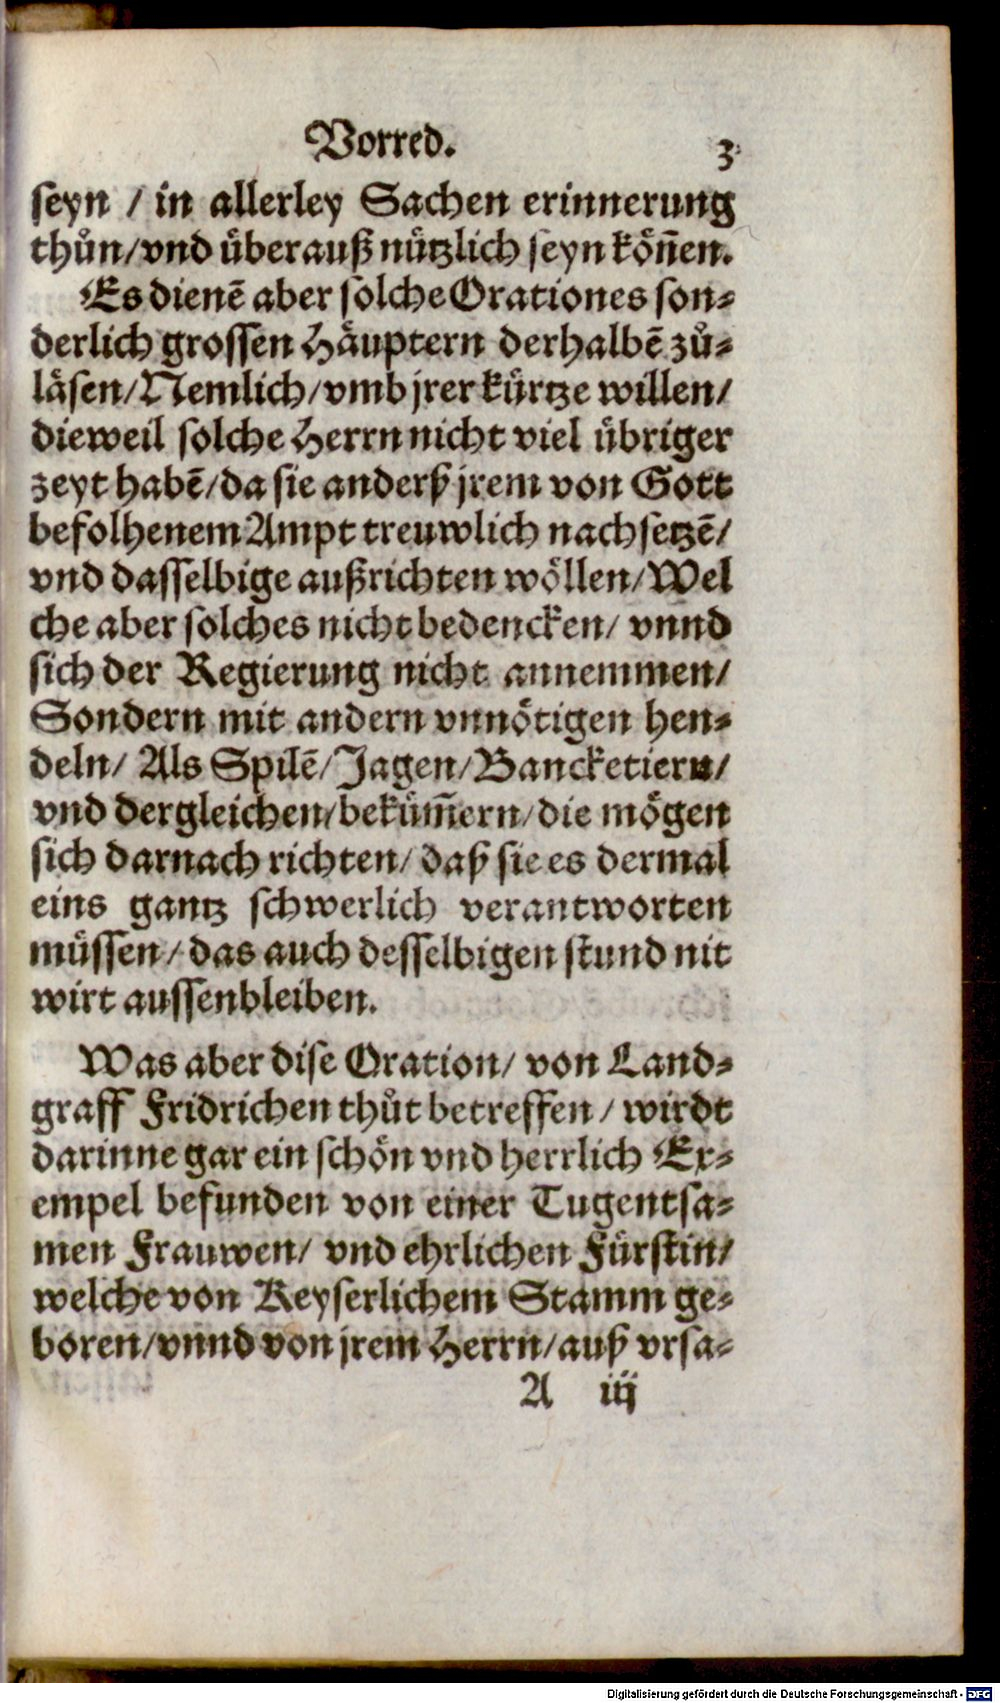 Vorred. 3
seyn / in allerley Sachen erinnerung
thůn/vnd uͤberauß nuͤtzlich seyn koͤn̄en.
Es dienē aber solche Orationes son⸗
derlich grossen Haͤuptern derhalbē zů⸗
laͤsen/Nemlich/vmb jrer kuͤrtze willen/
dieweil solche Herrn nicht viel uͤbriger
zeyt habē/da sie anderß jrem von Gott
befolhenem Ampt treuwlich nachsetzē/
vnd dasselbige außrichten woͤllen/Wel
che aber solches nicht bedencken/ vnnd
sich der Regierung nicht annemmen/
Sondern mit andern vnnoͤtigen hen⸗
deln/ Als Spilē/Jagen/Bancketiern/
vnd dergleichen/bekuͤm̄ern/die moͤgen
sich darnach richten/ daß sie es dermal
eins gantz schwerlich verantworten
muͤssen/das auch desselbigen stund nit
wirt aussenbleiben.
Was aber dise Oration/ von Land⸗
graff Fridrichen thůt betreffen/ wirdt
darinne gar ein schoͤn vnd herrlich Ex⸗
empel befunden von einer Tugentsa⸗
men Frauwen/ vnd ehrlichen Fuͤrstin/
welche von Keyserlichem Stamm ge⸗
boren/vnnd von jrem Herrn/auß vrsa⸗
A iij
Digitalisierung gefördert durch die Deutsche Forschungsgemeinschaft - DFG